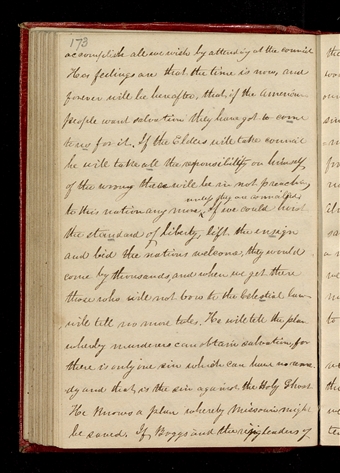 173
accomplish all we wish by attending at the council
His feelings are that the time is now, and
forever will be hereafter, that if the American
people want salvation they have got to come
to us for it. If the Elders will take council
he will take all the responsibility on himself
of the wrong there will be in not preaching
unless they are commanded
to this nation any more, if we could hoist
the standard of liberty, lift the ensign
and bid the nations welcome, they would
come by thousands, and when we get there
those who will not bow to the Celestial law
will tell no more tales. He will tell the plan
whereby murderers can obtain salvation, for
there is only one sin which can have no reme-
dy and that is the sin against the Holy Ghost
He knows a plan whereby Missouri might
be saved. If Boggs and the ringleaders of